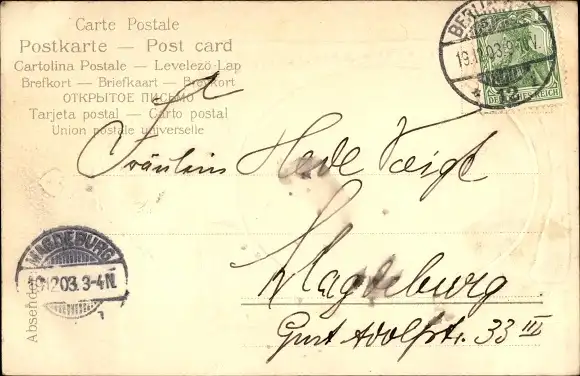 Carte Postale
Postkarte — Post card
Cartolina Postale — Levelező-Lap
Brefkort — Briefkaart — Brevkort
ОТКРЫТОЕ ПИСЬМО
Tarjeta postal — Carto postal
Union postale universelle
BERLIN
19.12.03. 9-10N.
12
DEUTSCHES REICH
Fräulein Hede Voigt
Magdeburg
Gust. Adolfstr. 33 III
MAGDEBURG
19.12.03. 3-4N.
1
Absender